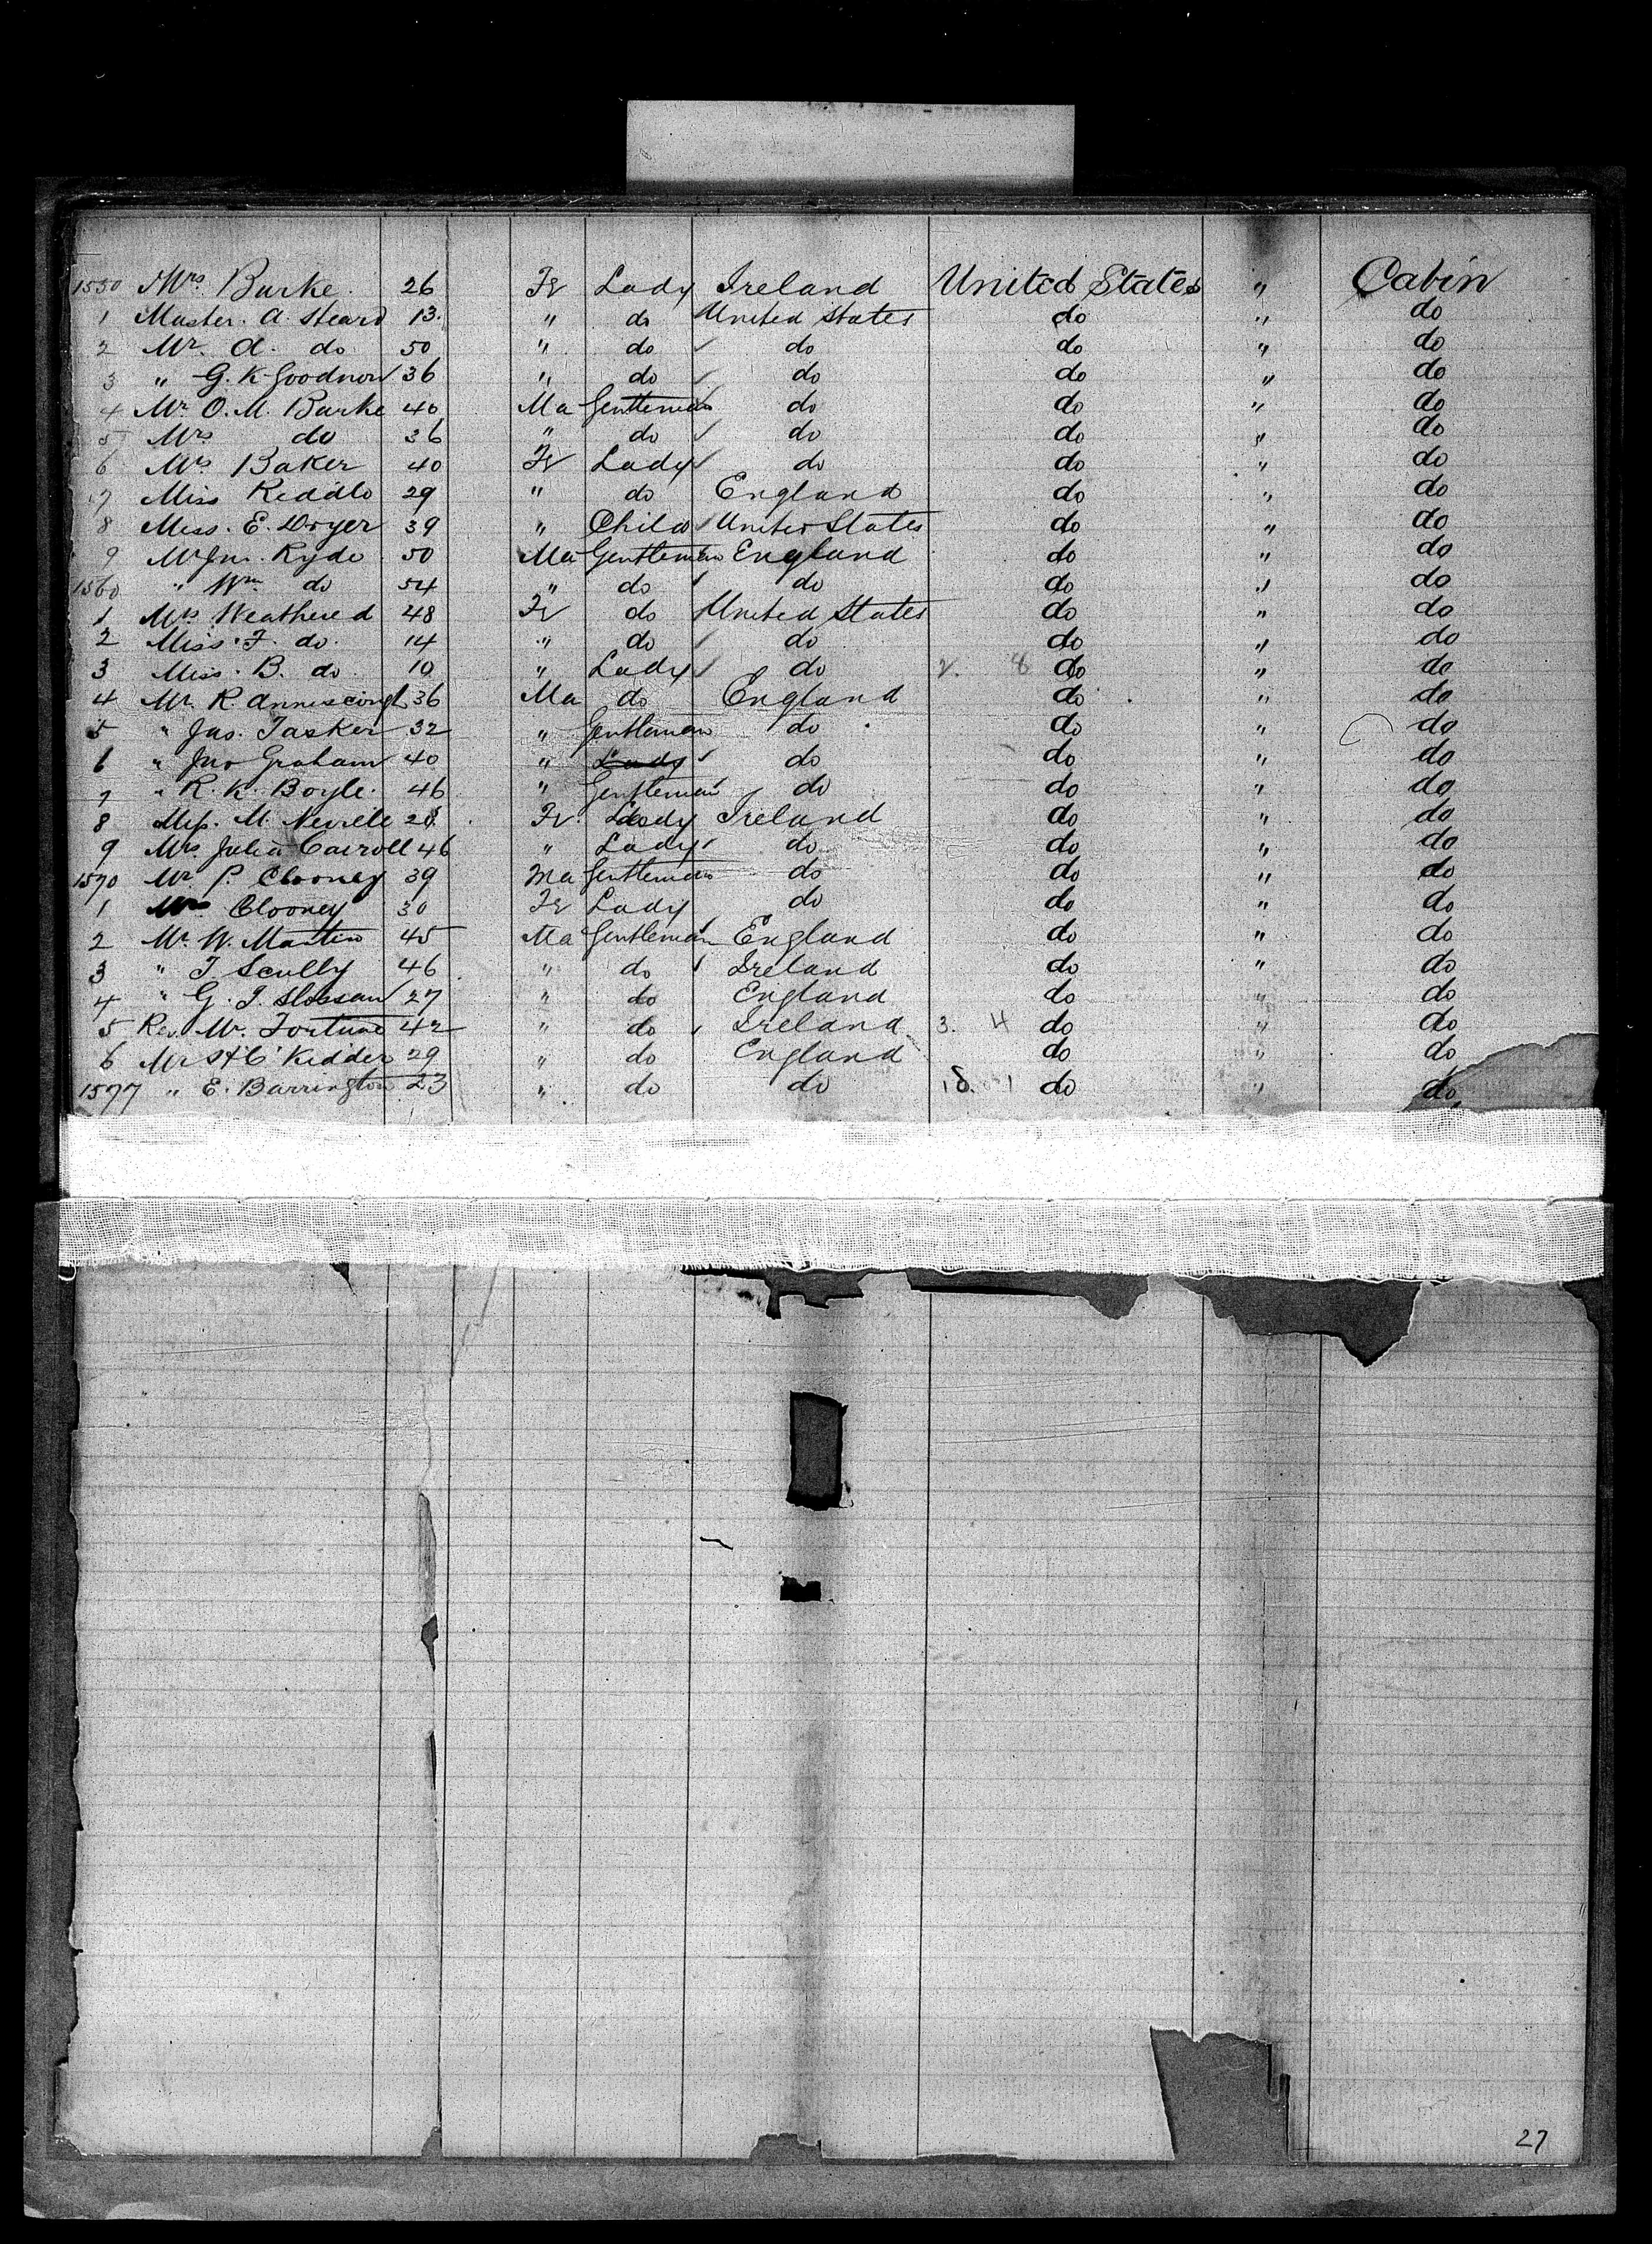 1550 Mrs. Burke. 26 Fe Lady Ireland United States " Cabin
1 Master. A. Heard 13. " do United States do " do
2 Mr. A. do 50 " do do do " do
3 " G. K. Goodnow 36 " do do do " do
4 Mr. O. M. Burke 40 Ma Gentleman do do " do
5 Mrs do 36 " do do do " do
6 Mrs Baker 40 Fe Lady do do " do
7 Miss 29 " do England do " do
8 Miss. E. Dryer 39 " Child United States do " do
9 Mr Jno. Ryde 50 Ma Gentleman England do " do
1560 " Wm do 54 " do do do " do
1 Mrs Weathered 48 Fe do United States do " do
2 Miss. F. do. 14 " do do do " do
3 Miss. B. do 10 " Lady do 2. 8 do " do
4 Mr. R. 36 Ma do England do " do
5 " Jas. Tasker 32 " Gentleman do do " do
6 " Jno Graham 40 " Lady do do " do
7 " R. K. Boyle. 46 " Gentleman do do " do
8 M. Neville 28 Fe. Lady Ireland do " do
9 Mrs. Julia Carroll 46 " Lady do do " do
1570 Mr. P. Clooney 39 Ma Gentleman do do " do
1 Mrs Clooney 30 Fe Lady do do " do
2 Mr. W. Martin 45 Ma Gentleman England do " do
3 " T. Scully 46 " do Ireland do " do
4 " G. J. Slossan 27 " do England do " do
5 Rev. Mr. Fortune 42 " do Ireland 3. 4 do " do
6 Mr Kidder 29 " do England do " do
1577 " E. Barrington 23 " do do do " do
27